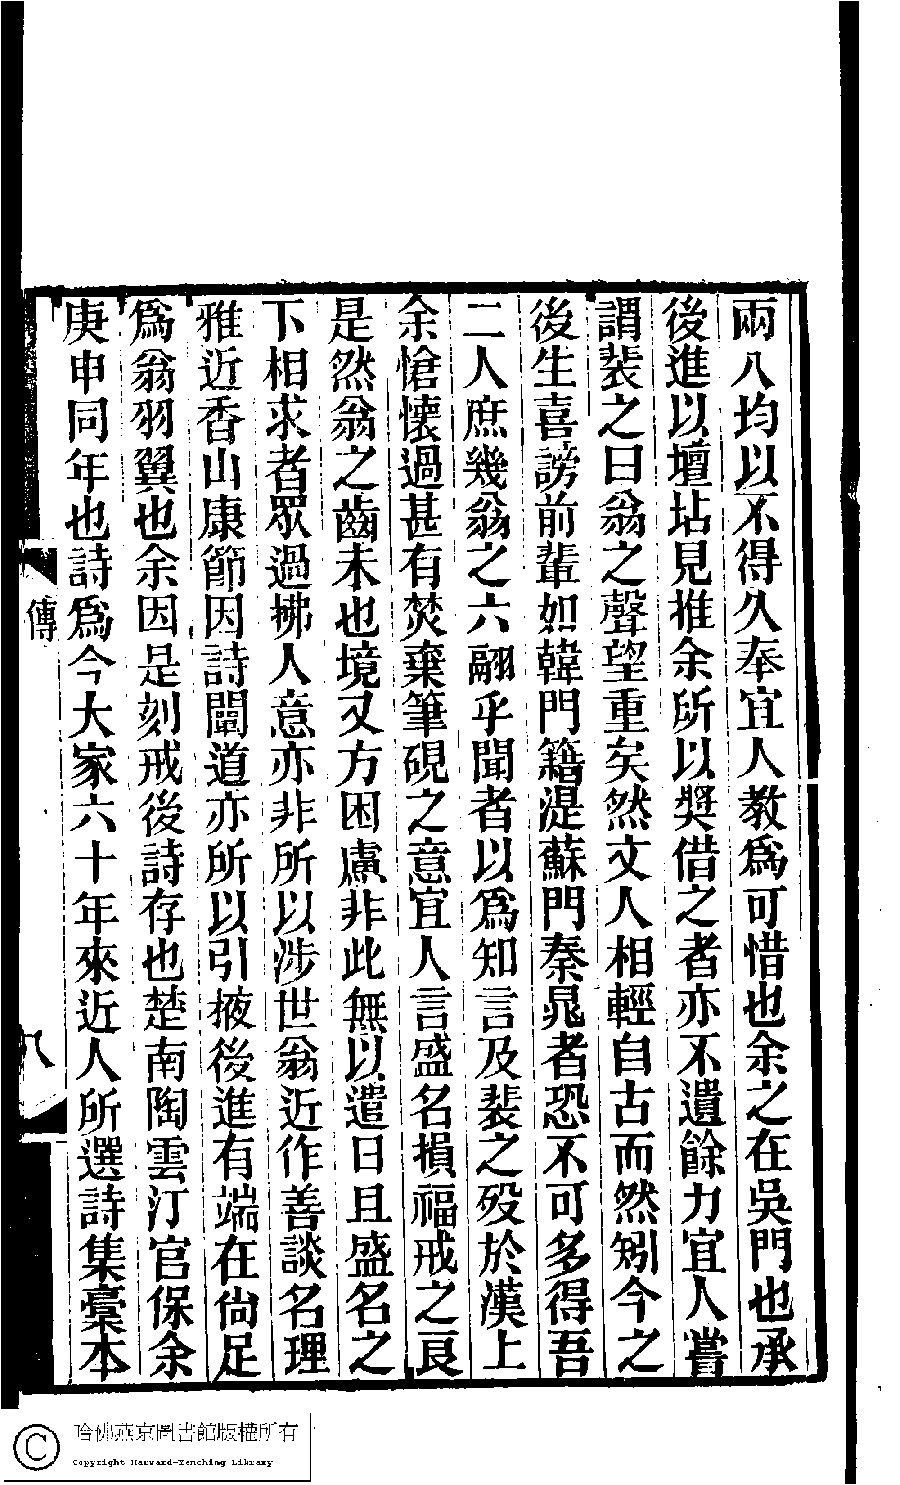 兩八均以不得久奉宜人教爲可惜也余之在吳門也承
後進以壇坫見推余所以奬借之者亦不遺餘力宜人嘗
謂裴之曰翁之聲望重矣然文人相輕自古而然矧今之
後生喜謗前輩如韓門籍湜蘇門秦晁者恐不可多得吾
二人庶幾翁之六翮乎聞者以爲知言及裴之歿於漢上
余愴懷過甚有焚棄筆硯之意宜人言盛名損福戒之良
是然翁之齒未也境又方困慮非此無以遣日且盛名之
下相求者眾過拂人意亦非所以涉世翁近作善談名理
雅近香山康節因詩闡道亦所以引掖後進有端在尙足
爲翁羽翼也余因是刻戒後詩存也楚南陶雲汀官保余
庚申同年也詩爲今大家六十年來近人所選詩集稾本
傳
八
哈佛燕京圖書館版權所有
Copyright Harvard-Yenching Library